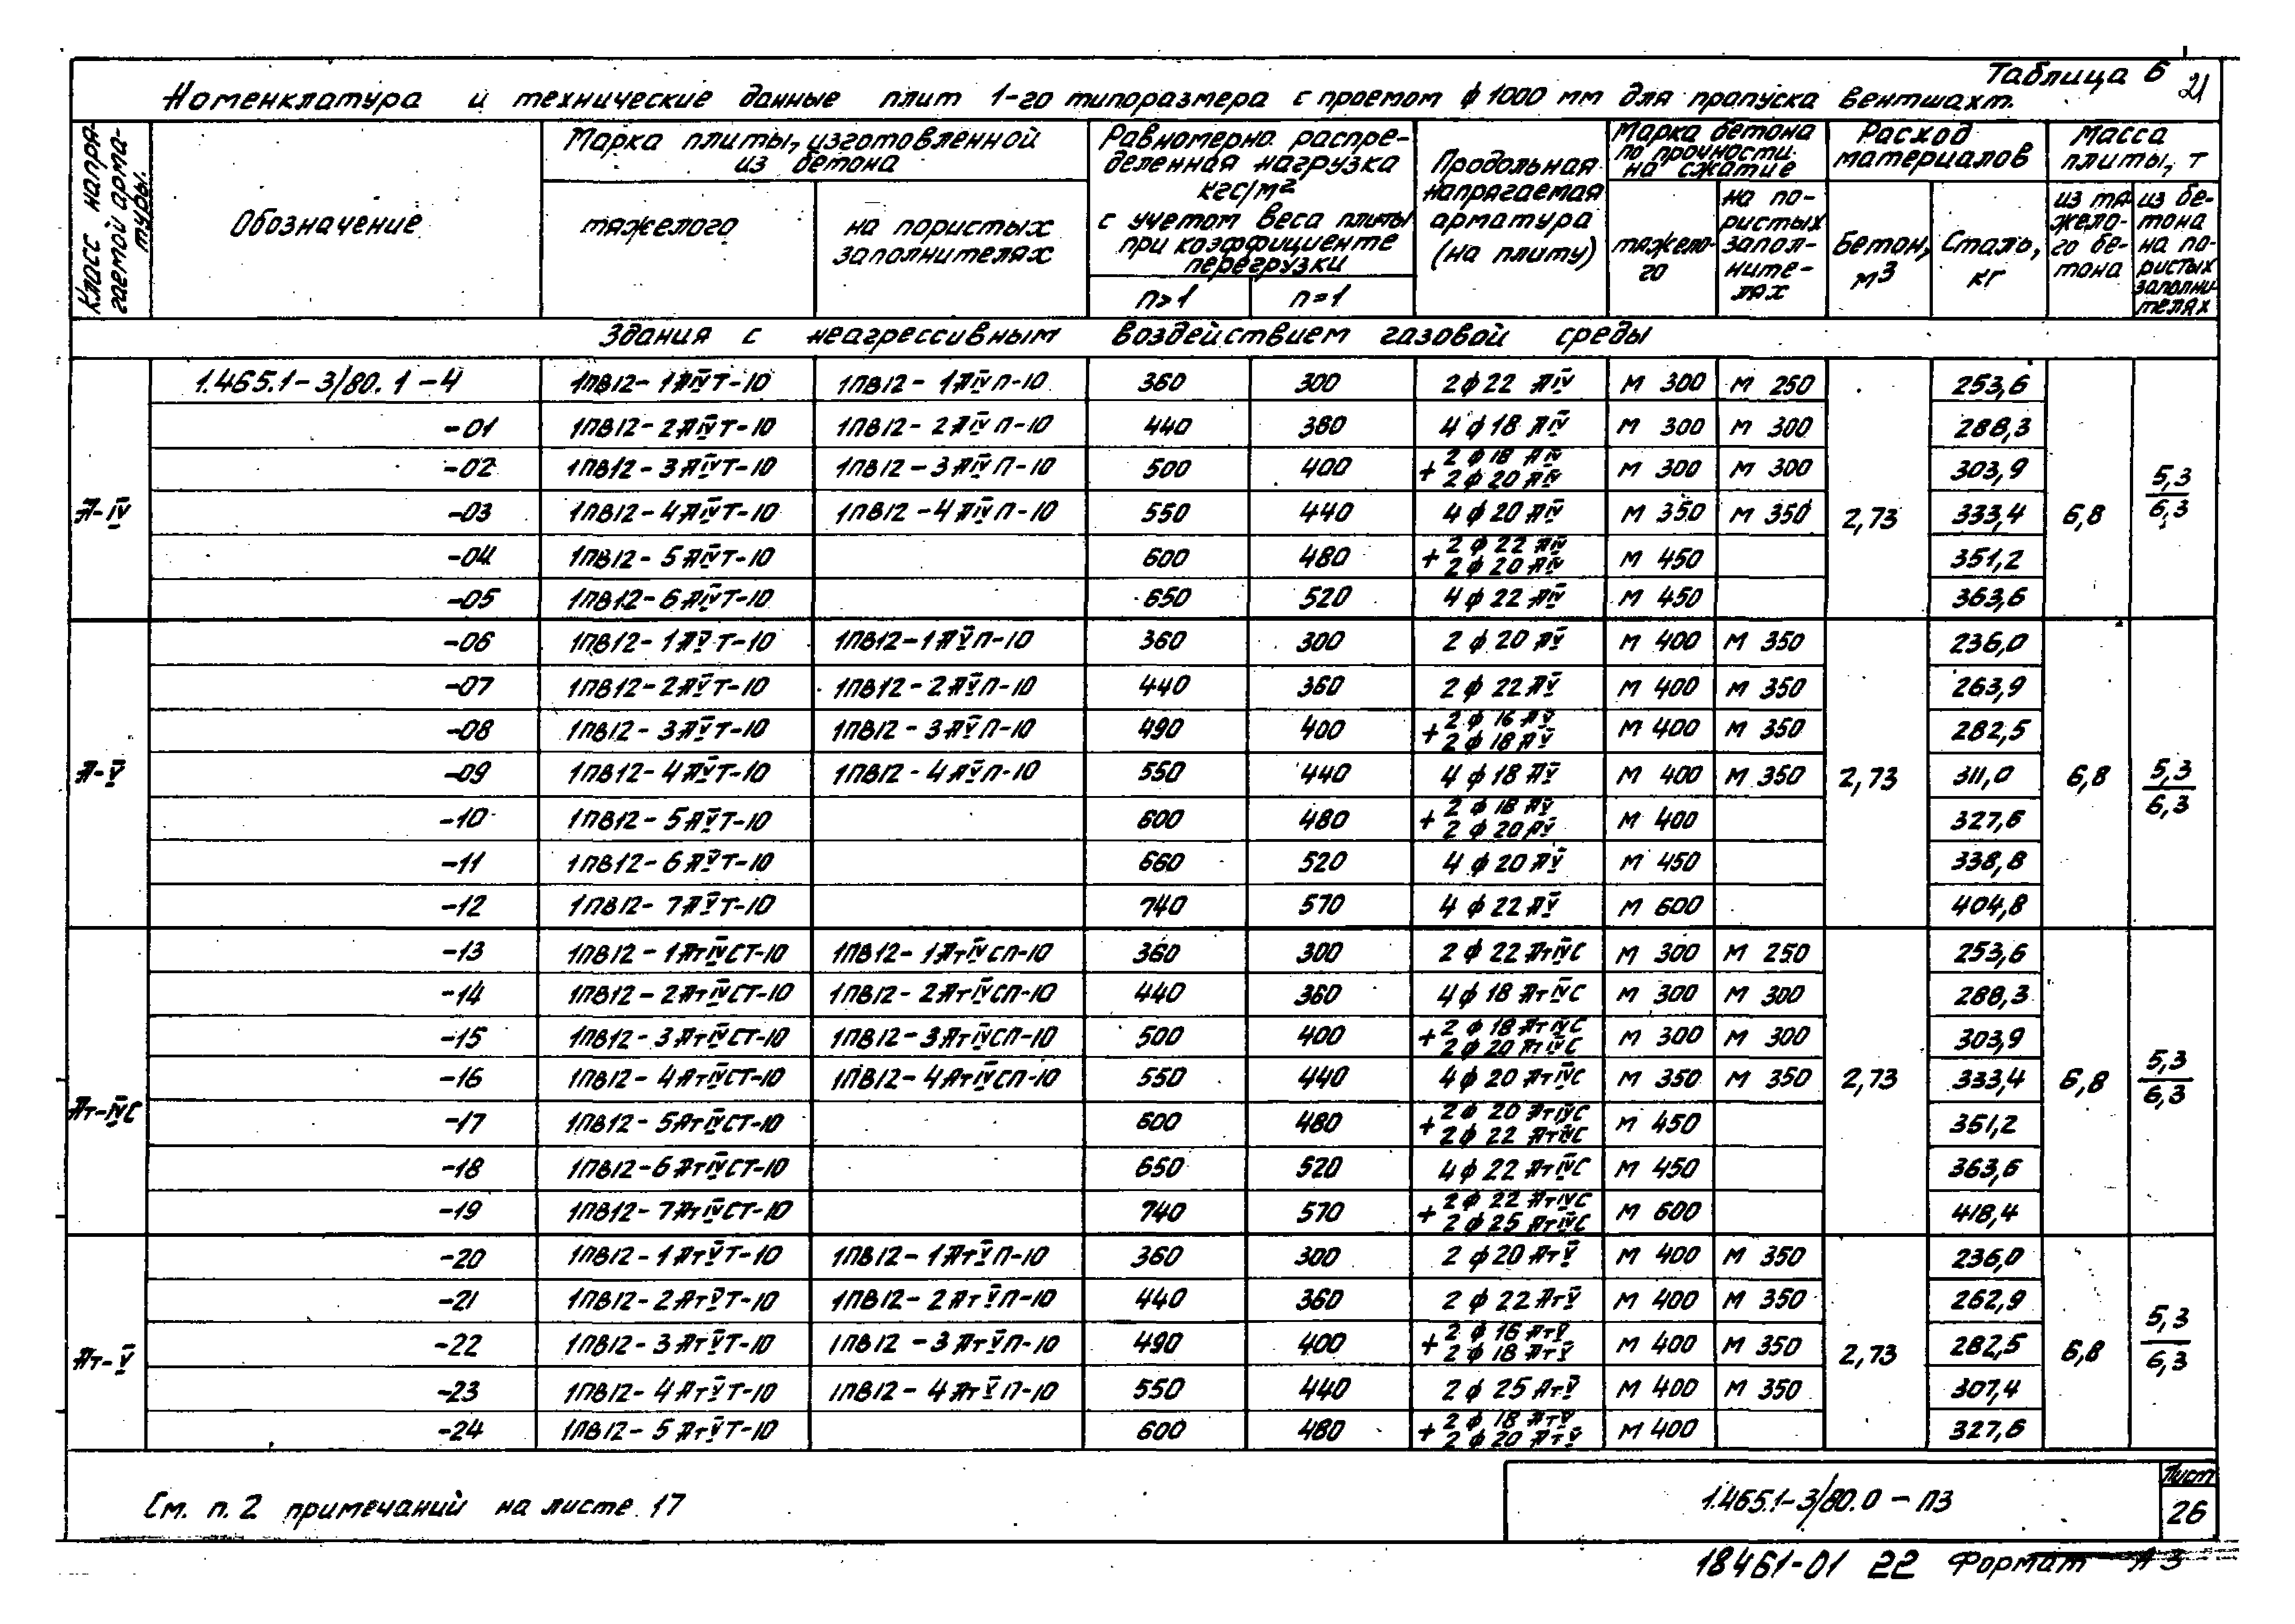 Таблица 6
21
Номенклатура и технические данные плит 1-го типоразмера с проемом ф 1000 мм для пропуска вентшахт.
Класс напрягаемой арматуры.
Обозначение
Марка плиты, изготовленной из бетона
тяжелого
на пористых заполнителях
Равномерно распределенная нагрузка кгс/м² с учетом веса плиты при коэффициенте перегрузки
n>1
n=1
Продольная напрягаемая арматура (на плиту)
Марка бетона по прочности на сжатие
тяжелого
на пористых заполнителях
Расход материалов
Бетон, м3
Сталь, кг
Масса плиты, т
из тяжелого бетона
из бетона на пористых заполнителях
Здания с неагрессивным воздействием газовой среды
А-IV
1.465.1-3/80.1-4 1ПВ12-1АIVТ-10 1ПВ12-1АIVП-10 360 300 2ф22 АIV М 300 М 250 253,6
-01 1ПВ12-2АIVТ-10 1ПВ12-2АIVП-10 440 360 4ф18 АIV М 300 М 300 288,3
-02 1ПВ12-3АIVТ-10 1ПВ12-3АIVП-10 500 400 2ф18 АIV + 2ф20 АIV М 300 М 300 303,9
-03 1ПВ12-4АIVТ-10 1ПВ12-4АIVП-10 550 440 4ф20 АIV М 350 М 350 2,73 333,4 6,8 5,3/6,3
-04 1ПВ12-5АIVТ-10 600 480 2ф22 АIV + 2ф20 АIV М 450 351,2
-05 1ПВ12-6АIVТ-10 650 520 4ф22 АIV М 450 363,6
А-V
-06 1ПВ12-1АVТ-10 1ПВ12-1АVП-10 360 300 2ф20 АV М 400 М 350 236,0
-07 1ПВ12-2АVТ-10 1ПВ12-2АVП-10 440 360 2ф22 АV М 400 М 350 263,9
-08 1ПВ12-3АVТ-10 1ПВ12-3АVП-10 490 400 2ф16 АV + 2ф18 АV М 400 М 350 282,5
-09 1ПВ12-4АVТ-10 1ПВ12-4АVП-10 550 440 4ф18 АV М 400 М 350 2,73 311,0 6,8 5,3/6,3
-10 1ПВ12-5АVТ-10 600 480 2ф18 АV + 2ф20 АV М 400 327,6
-11 1ПВ12-6АVТ-10 660 520 4ф20 АV М 450 338,8
-12 1ПВ12-7АVТ-10 740 570 4ф22 АV М 600 404,8
Ат-IVС
-13 1ПВ12-1АтIVСТ-10 1ПВ12-1АтIVСП-10 360 300 2ф22 АтIVС М 300 М 250 253,6
-14 1ПВ12-2АтIVСТ-10 1ПВ12-2АтIVСП-10 440 360 4ф18 АтIVС М 300 М 300 288,3
-15 1ПВ12-3АтIVСТ-10 1ПВ12-3АтIVСП-10 500 400 2ф18 АтIVС + 2ф20 АтIVС М 300 М 300 303,9
-16 1ПВ12-4АтIVСТ-10 1ПВ12-4АтIVСП-10 550 440 4ф20 АтIVС М 350 М 350 2,73 333,4 6,8 5,3/6,3
-17 1ПВ12-5АтIVСТ-10 600 480 2ф20 АтIVС + 2ф22 АтIVС М 450 351,2
-18 1ПВ12-6АтIVСТ-10 650 520 4ф22 АтIVС М 450 363,6
-19 1ПВ12-7АтIVСТ-10 740 570 2ф22 АтIVС + 2ф25 АтIVС М 600 418,4
Ат-V
-20 1ПВ12-1АтVТ-10 1ПВ12-1АтVП-10 360 300 2ф20 АтV М 400 М 350 236,0
-21 1ПВ12-2АтVТ-10 1ПВ12-2АтVП-10 440 360 2ф22 АтV М 400 М 350 262,9
-22 1ПВ12-3АтVТ-10 1ПВ12-3АтVП-10 490 400 2ф16 АтV + 2ф18 АтV М 400 М 350 2,73 282,5 6,8 5,3/6,3
-23 1ПВ12-4АтVТ-10 1ПВ12-4АтVП-10 550 440 2ф25 АтV М 400 М 350 307,4
-24 1ПВ12-5АтVТ-10 600 480 2ф18 АтV + 2ф20 АтV М 400 327,6
См. п. 2 примечаний на листе 17
1.465.1-3/80.0-ПЗ
Лист
26
18461-01 22 Формат А3